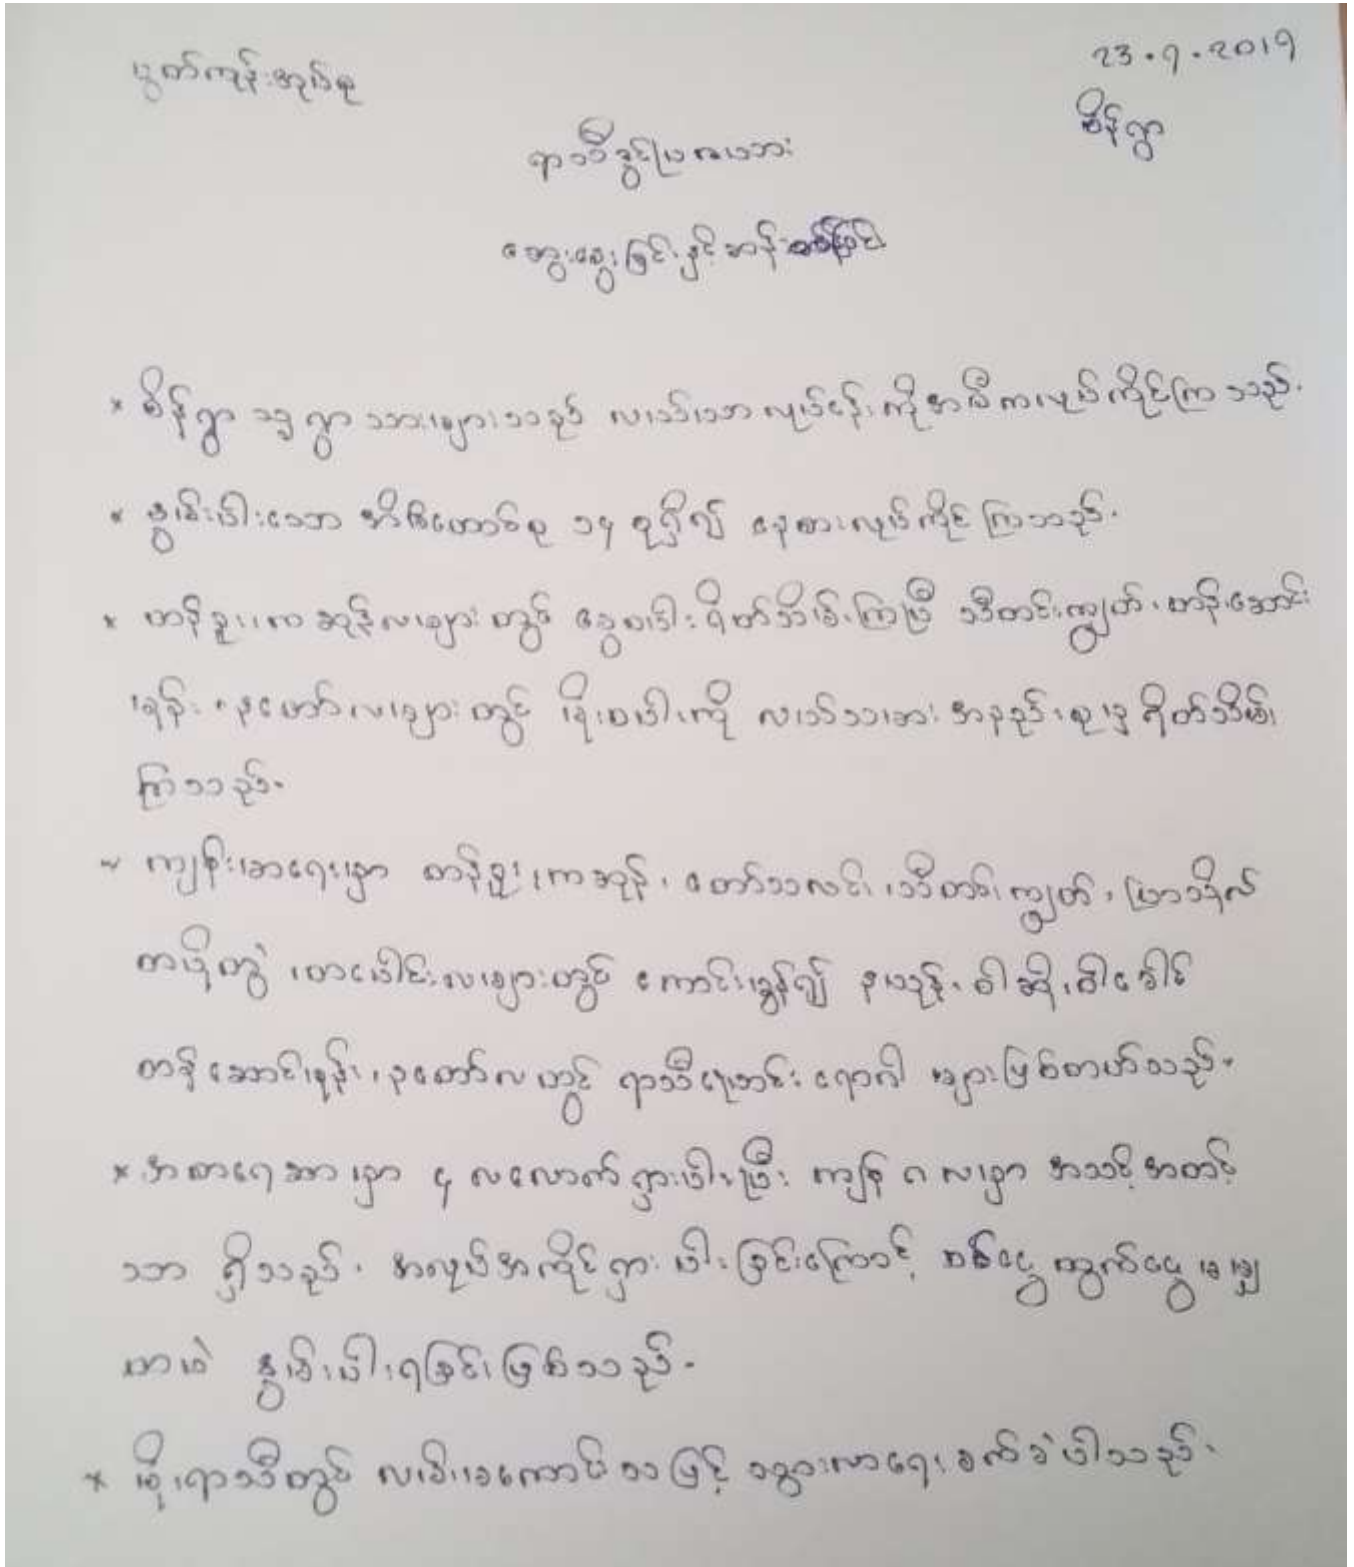 ပွတ်ကုန်းအုပ်စု
23.7.2019
စိန်ရွာ
ရာသီခွင်ပြကသား
ဆွေးနွေးခြင်းနှင့်ဆန်း
* စိန်ရွာ သူ့ရွာသားများသည် လယ်ယာလုပ်ငန်းကိုအဓိကလုပ်ကိုင်ကြသည်.
* နွမ်းပါးသော အိမ်ထောင်စု ၁၄ စုရှိ၍ နေ့စားလုပ်ကိုင်ကြသည်.
* တန်ခူး၊ကဆုန်လများတွင် နွေစပါးရိတ်သိမ်းကြပြီ သီတင်းကျွတ်၊ တန်ဆောင်
မုန်း၊ နတော်လများတွင် မိုးစပါးကို လယ်သားအနည်းစုမှ ရိတ်သိမ်း
ကြသည်.
~ ကျန်းမာရေးမှာ တန်ခူး၊ကဆုန်၊ တော်သလင်း၊ သီတင်းကျွတ်၊ ပြာသိုလ်
တပို့တွဲ၊ တပေါင်းလများတွင် ကောင်းမွန်၍ နယုန်၊ ဝါဆို၊ ဝါခေါင်
တန်ဆောင်မုန်း၊ နတော်လတွင် ရာသီရောင်းရောဂါ များဖြစ်တတ်သည်.
* အစားရေစာမှာ ၄ လလောက်ရှားပါးပြီး ကျန် ၈ လမှာ အသင့်အတင့်
သာ ရှိသည်. အလုပ်အကိုင်ရှားပါးခြင်းကြောင့် ဝင်ငွေ ထွက်ငွေ မမျှ
တာပဲ နွမ်းပါးရခြင်းဖြစ်သည်.
* မိုးရာသီတွင် လမ်းမကောင်းသဖြင့် သွားလာရေးခက်ခဲပါသည်.